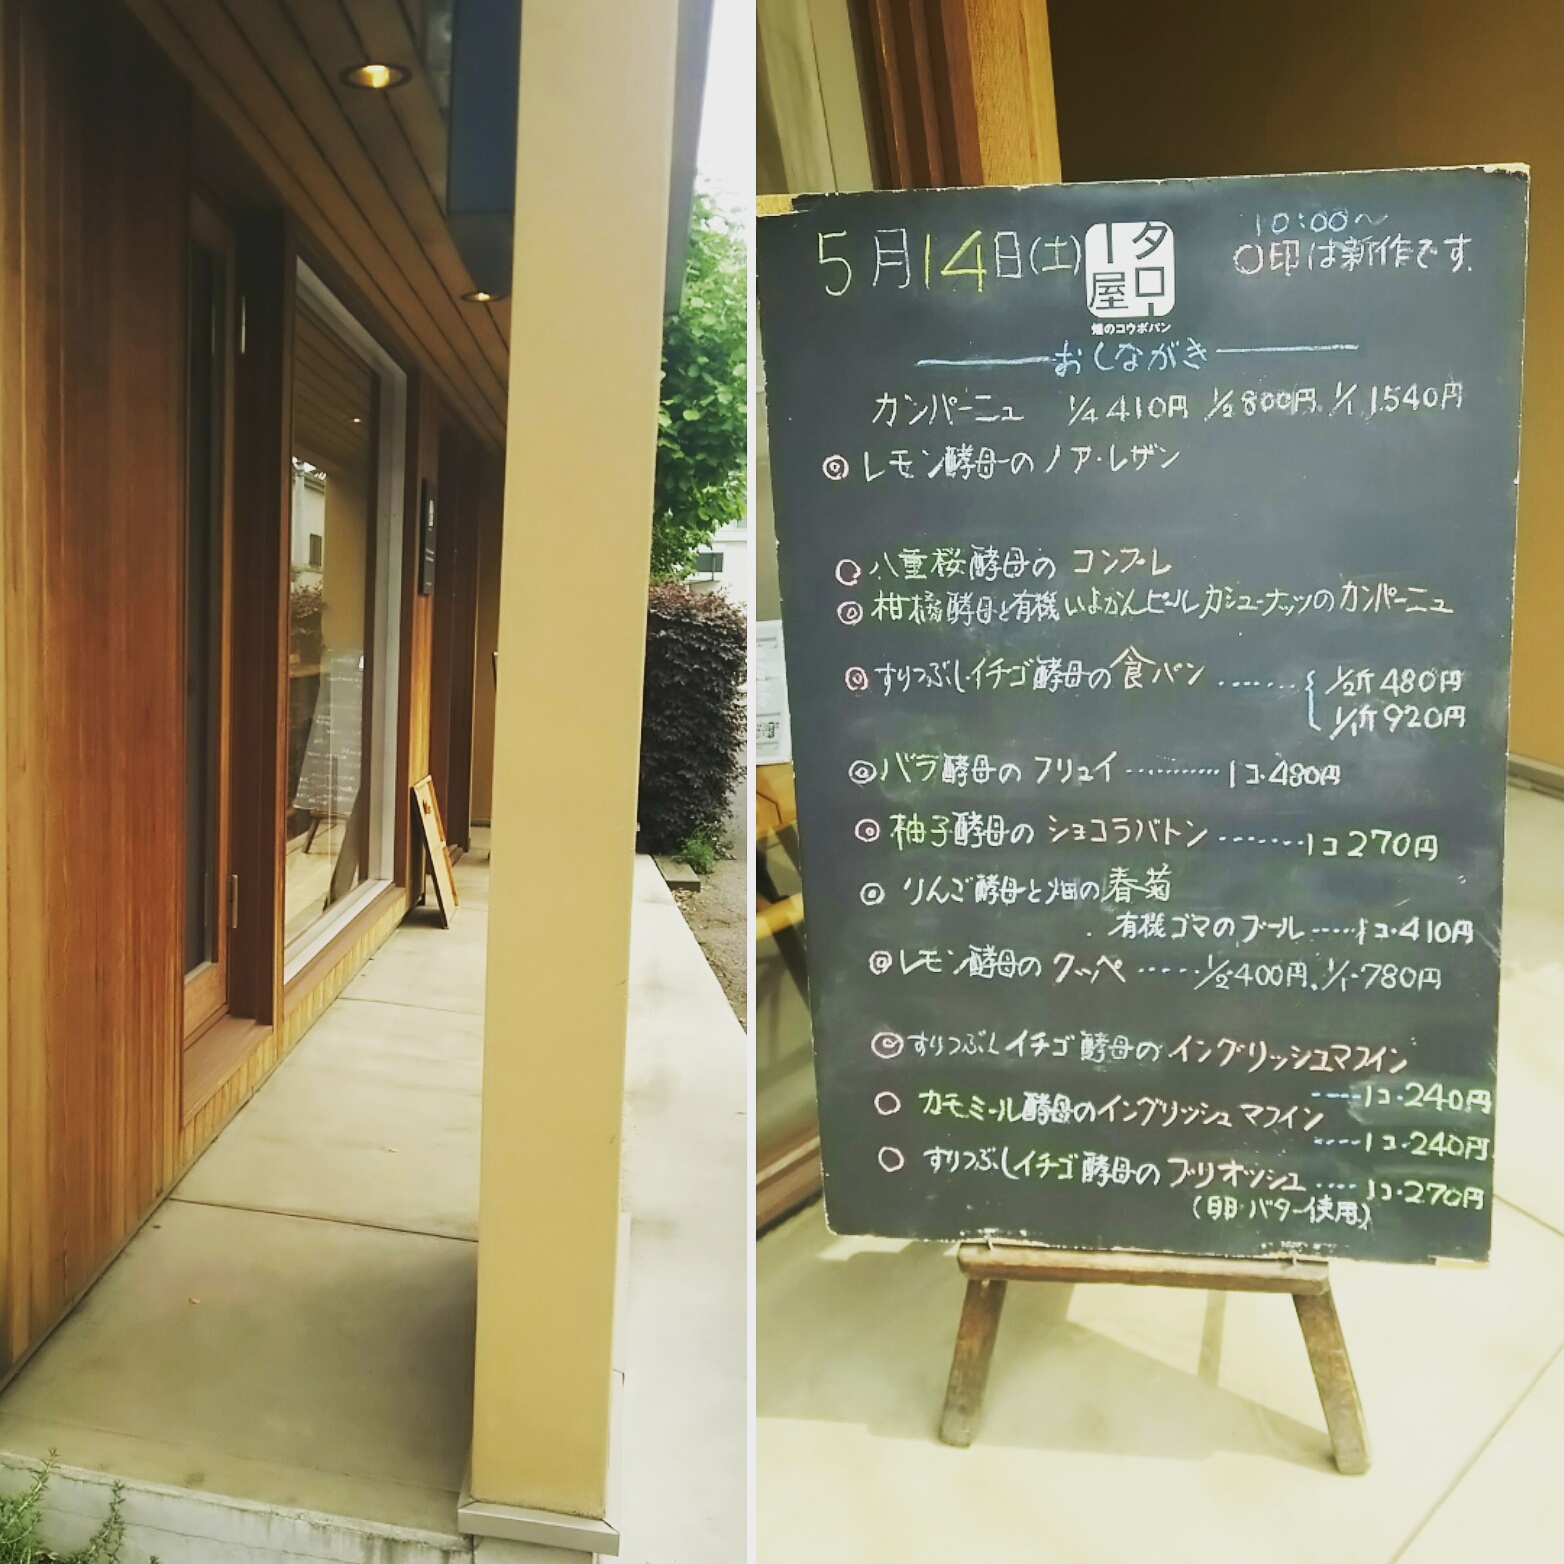 5月14日(土)
タロー屋
畑のコウボパン
10:00〜
〇印は新作です.
おしながき
カンパーニュ 1/4 410円 1/2 800円. 1/1 1540円
◎ レモン酵母のノア・レザン
〇 八重桜酵母の コンプレ
◎ 柑橘酵母と有機いよかんピールカシューナッツのカンパーニュ
◎ すりつぶしイチゴ酵母の食パン ……. 1/2斤 480円
1/1斤 920円
◎ バラ酵母の フリュイ ………… 1コ・480円
◎ 柚子酵母の ショコラバトン ……..1コ270円
◎ りんご酵母と畑の春菊
有機ゴマのブール …..1コ・410円
◎ レモン酵母の クッペ …… 1/2・400円. 1/1・780円
◎ すりつぶしイチゴ酵母のイングリッシュマフイン
----1コ・240円
〇 カモミール酵母のイングリッシュマフイン
----1コ・240円
〇 すりつぶしイチゴ酵母の ブリオッシュ ….1コ・270円
(卵・バター使用)